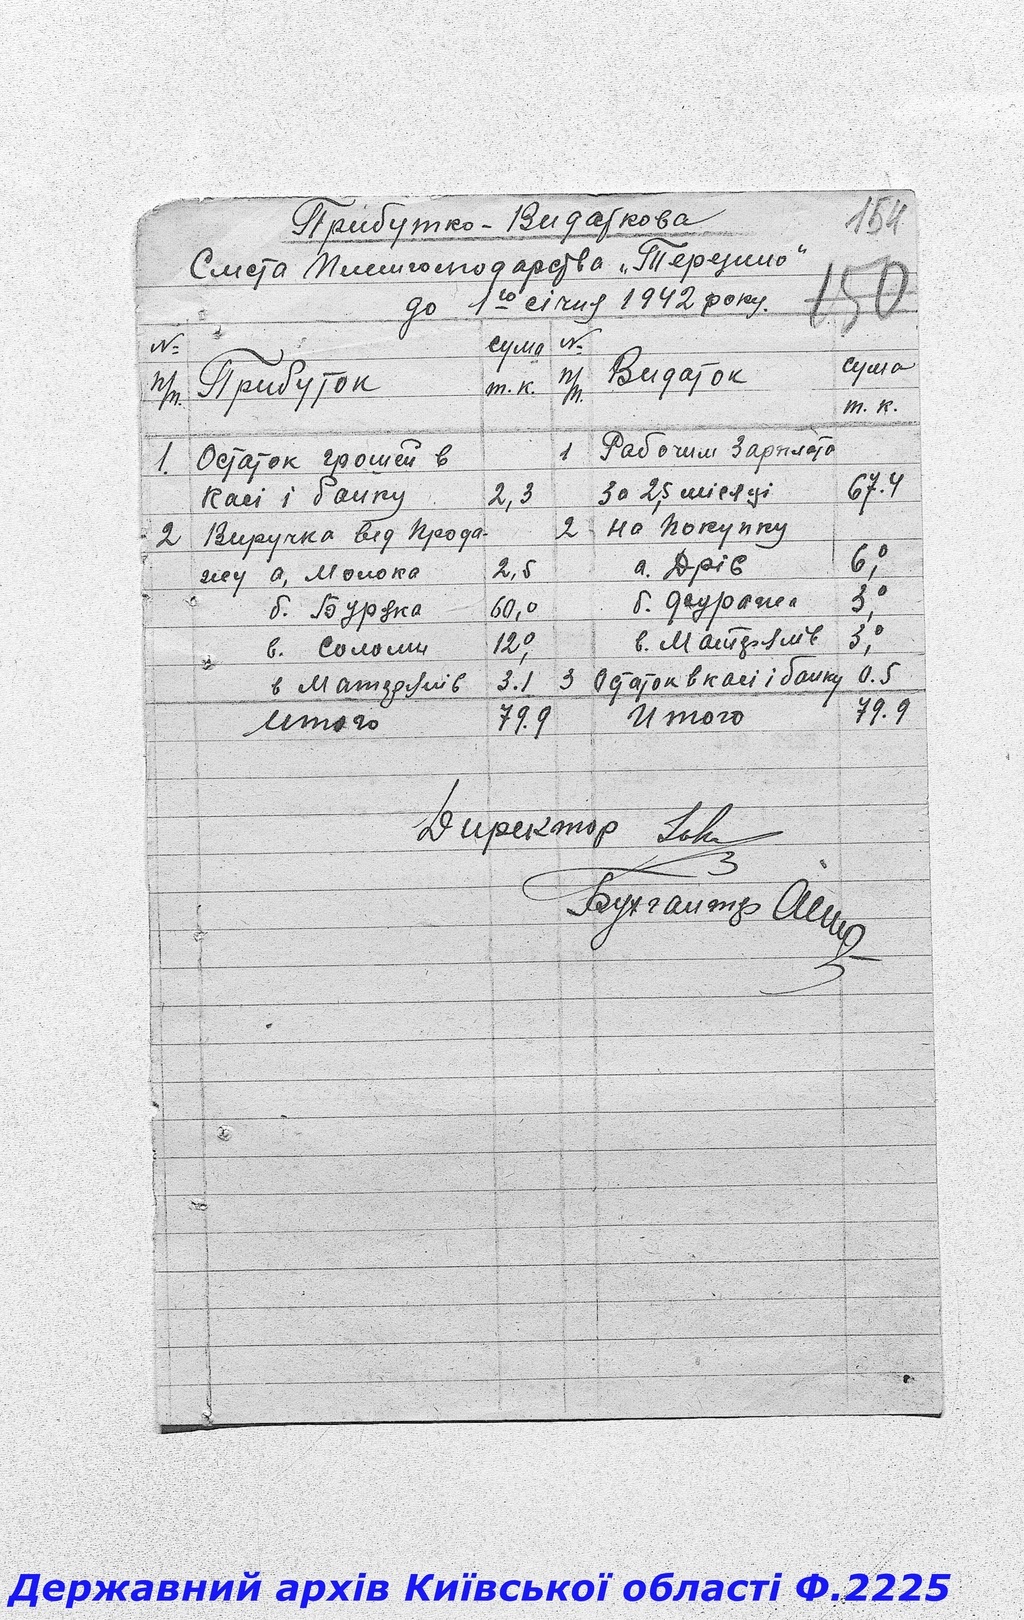 Прибутко-Видаткова
154
Смета Племгосподарства „Терезино"
150
до 1го січня 1942 року.
№ п/п. Прибуток сума т. к. № п/п. Видаток сума т. к.
1. Остаток грошей в 1 Рабочим Зарплата
касі і банку 2,3 За 2,5 місяці 67.4
2 Виручка від Прода- 2 На Покупку
жу а, Молока 2,5 а. Дрів 6,0
б. Буряка 60,0 б. Фуража 3,0
в. Соломи 12,0 в. Матерялів 3,0
в Матерялів 3.1 3 Остаток в касі і банку 0.5
Итого 79.9 Итого 79.9
Директор
Бухгалтер
Державний архів Київської області Ф.2225